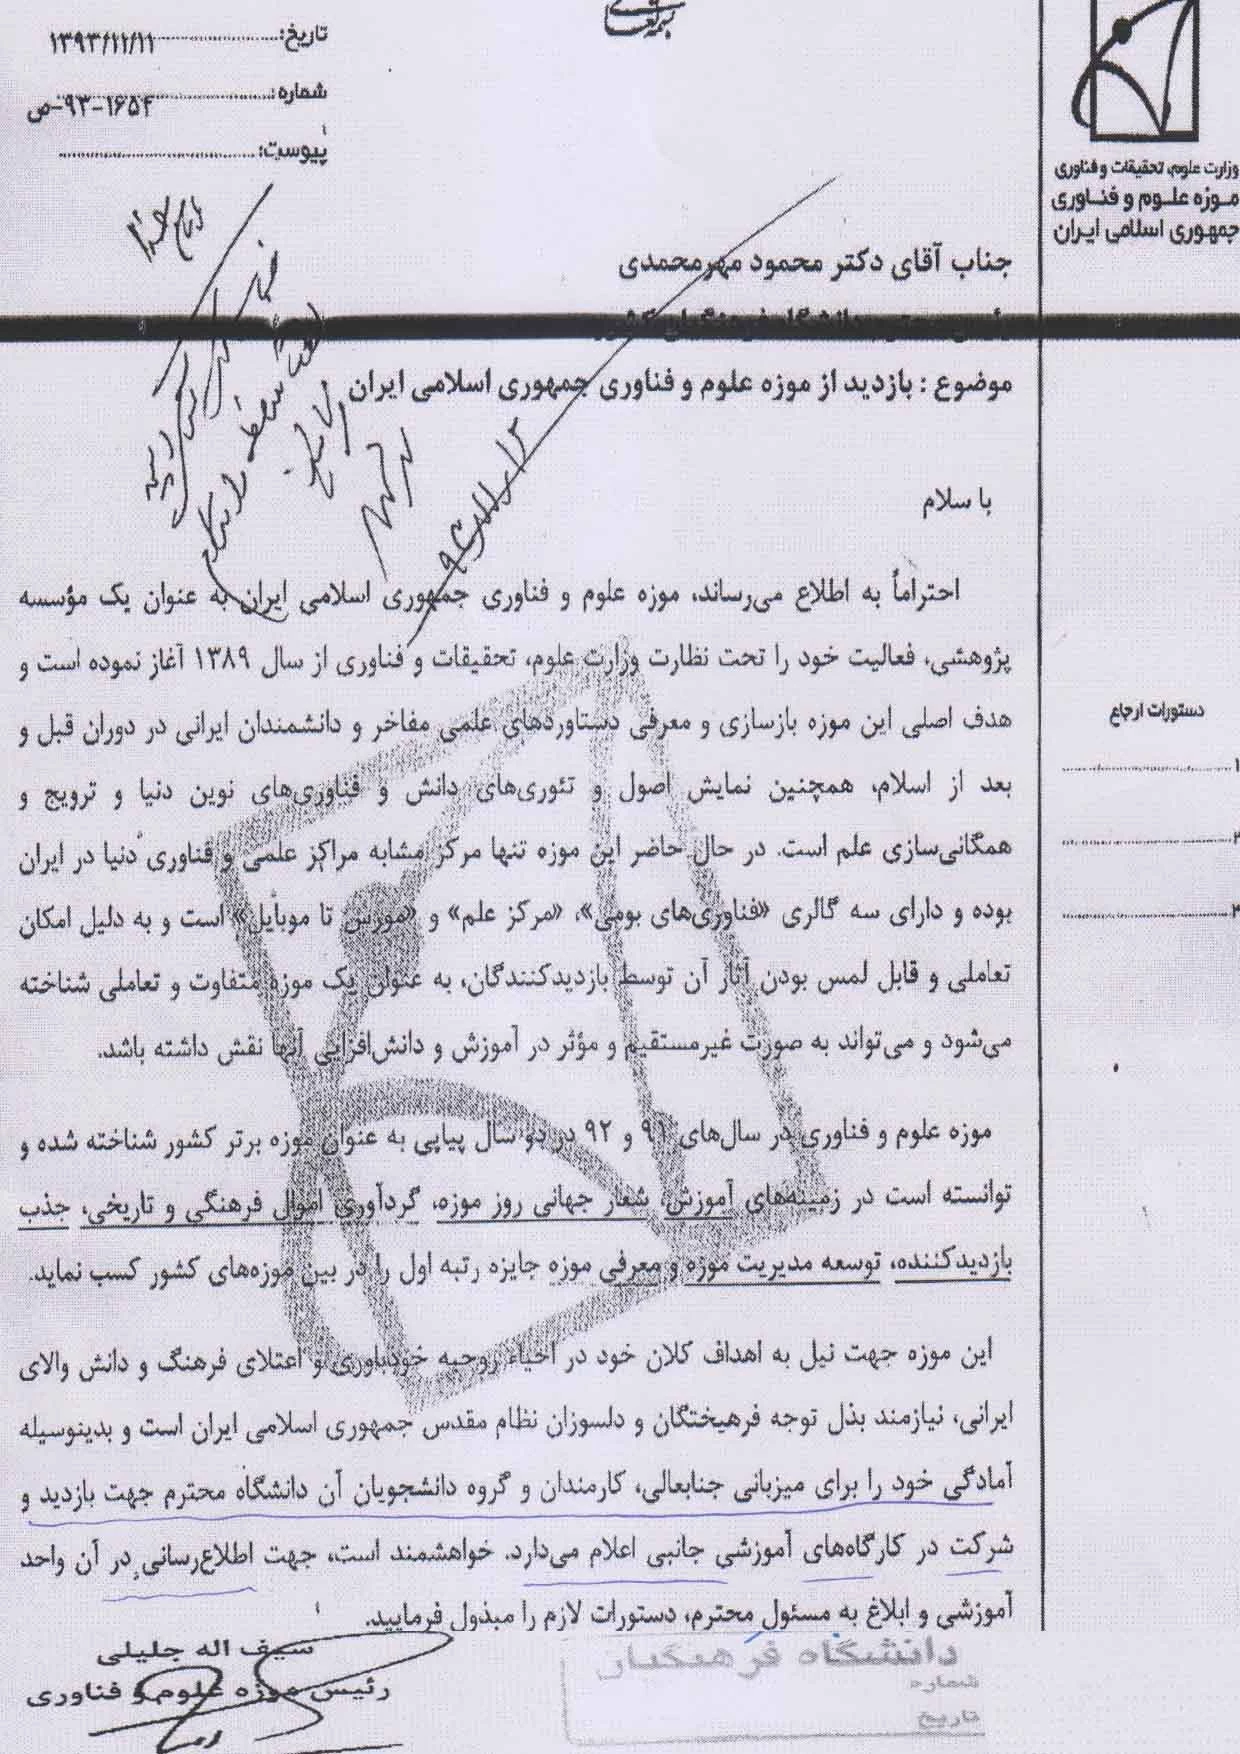 بسمه تعالی
تاریخ: ۱۳۹۳/۱۱/۱۱
شماره: ۱۶۵۴-۹۳-ص
پیوست:
وزارت علوم، تحقیقات و فناوری
موزه علوم و فناوری
جمهوری اسلامی ایران
جناب آقای دکتر محمود مهرمحمدی
موضوع : بازدید از موزه علوم و فناوری جمهوری اسلامی ایران
با سلام
احتراماً به اطلاع می‌رساند، موزه علوم و فناوری جمهوری اسلامی ایران به عنوان یک مؤسسه
پژوهشی، فعالیت خود را تحت نظارت وزارت علوم، تحقیقات و فناوری از سال ۱۳۸۹ آغاز نموده است و
هدف اصلی این موزه بازسازی و معرفی دستاوردهای علمی مفاخر و دانشمندان ایرانی در دوران قبل و
بعد از اسلام، همچنین نمایش اصول و تئوری‌های دانش و فناوری‌های نوین دنیا و ترویج و
همگانی‌سازی علم است. در حال حاضر این موزه تنها مرکز مشابه مراکز علمی و فناوری دنیا در ایران
بوده و دارای سه گالری «فناوری‌های بومی»، «مرکز علم» و «مورس تا موبایل» است و به دلیل امکان
تعاملی و قابل لمس بودن آثار آن توسط بازدیدکنندگان، به عنوان یک موزه متفاوت و تعاملی شناخته
می‌شود و می‌تواند به صورت غیرمستقیم و مؤثر در آموزش و دانش‌افزایی آنها نقش داشته باشد.
موزه علوم و فناوری در سال‌های ۹۱ و ۹۲ در دو سال پیاپی به عنوان موزه برتر کشور شناخته شده و
توانسته است در زمینه‌های آموزش، شعار جهانی روز موزه، گردآوری اموال فرهنگی و تاریخی، جذب
بازدیدکننده، توسعه مدیریت موزه و معرفی موزه جایزه رتبه اول را در بین موزه‌های کشور کسب نماید.
این موزه جهت نیل به اهداف کلان خود در احیاء روحیه خودباوری و اعتلای فرهنگ و دانش والای
ایرانی، نیازمند بذل توجه فرهیختگان و دلسوزان نظام مقدس جمهوری اسلامی ایران است و بدینوسیله
آمادگی خود را برای میزبانی جنابعالی، کارمندان و گروه دانشجویان آن دانشگاه محترم جهت بازدید و
شرکت در کارگاه‌های آموزشی جانبی اعلام می‌دارد. خواهشمند است، جهت اطلاع‌رسانی در آن واحد
آموزشی و ابلاغ به مسئول محترم، دستورات لازم را مبذول فرمایید.
سیف اله جلیلی
رئیس موزه علوم و فناوری
دانشگاه فرهنگیان
شماره
تاریخ
دستورات ارجاع
۱
۲
۳